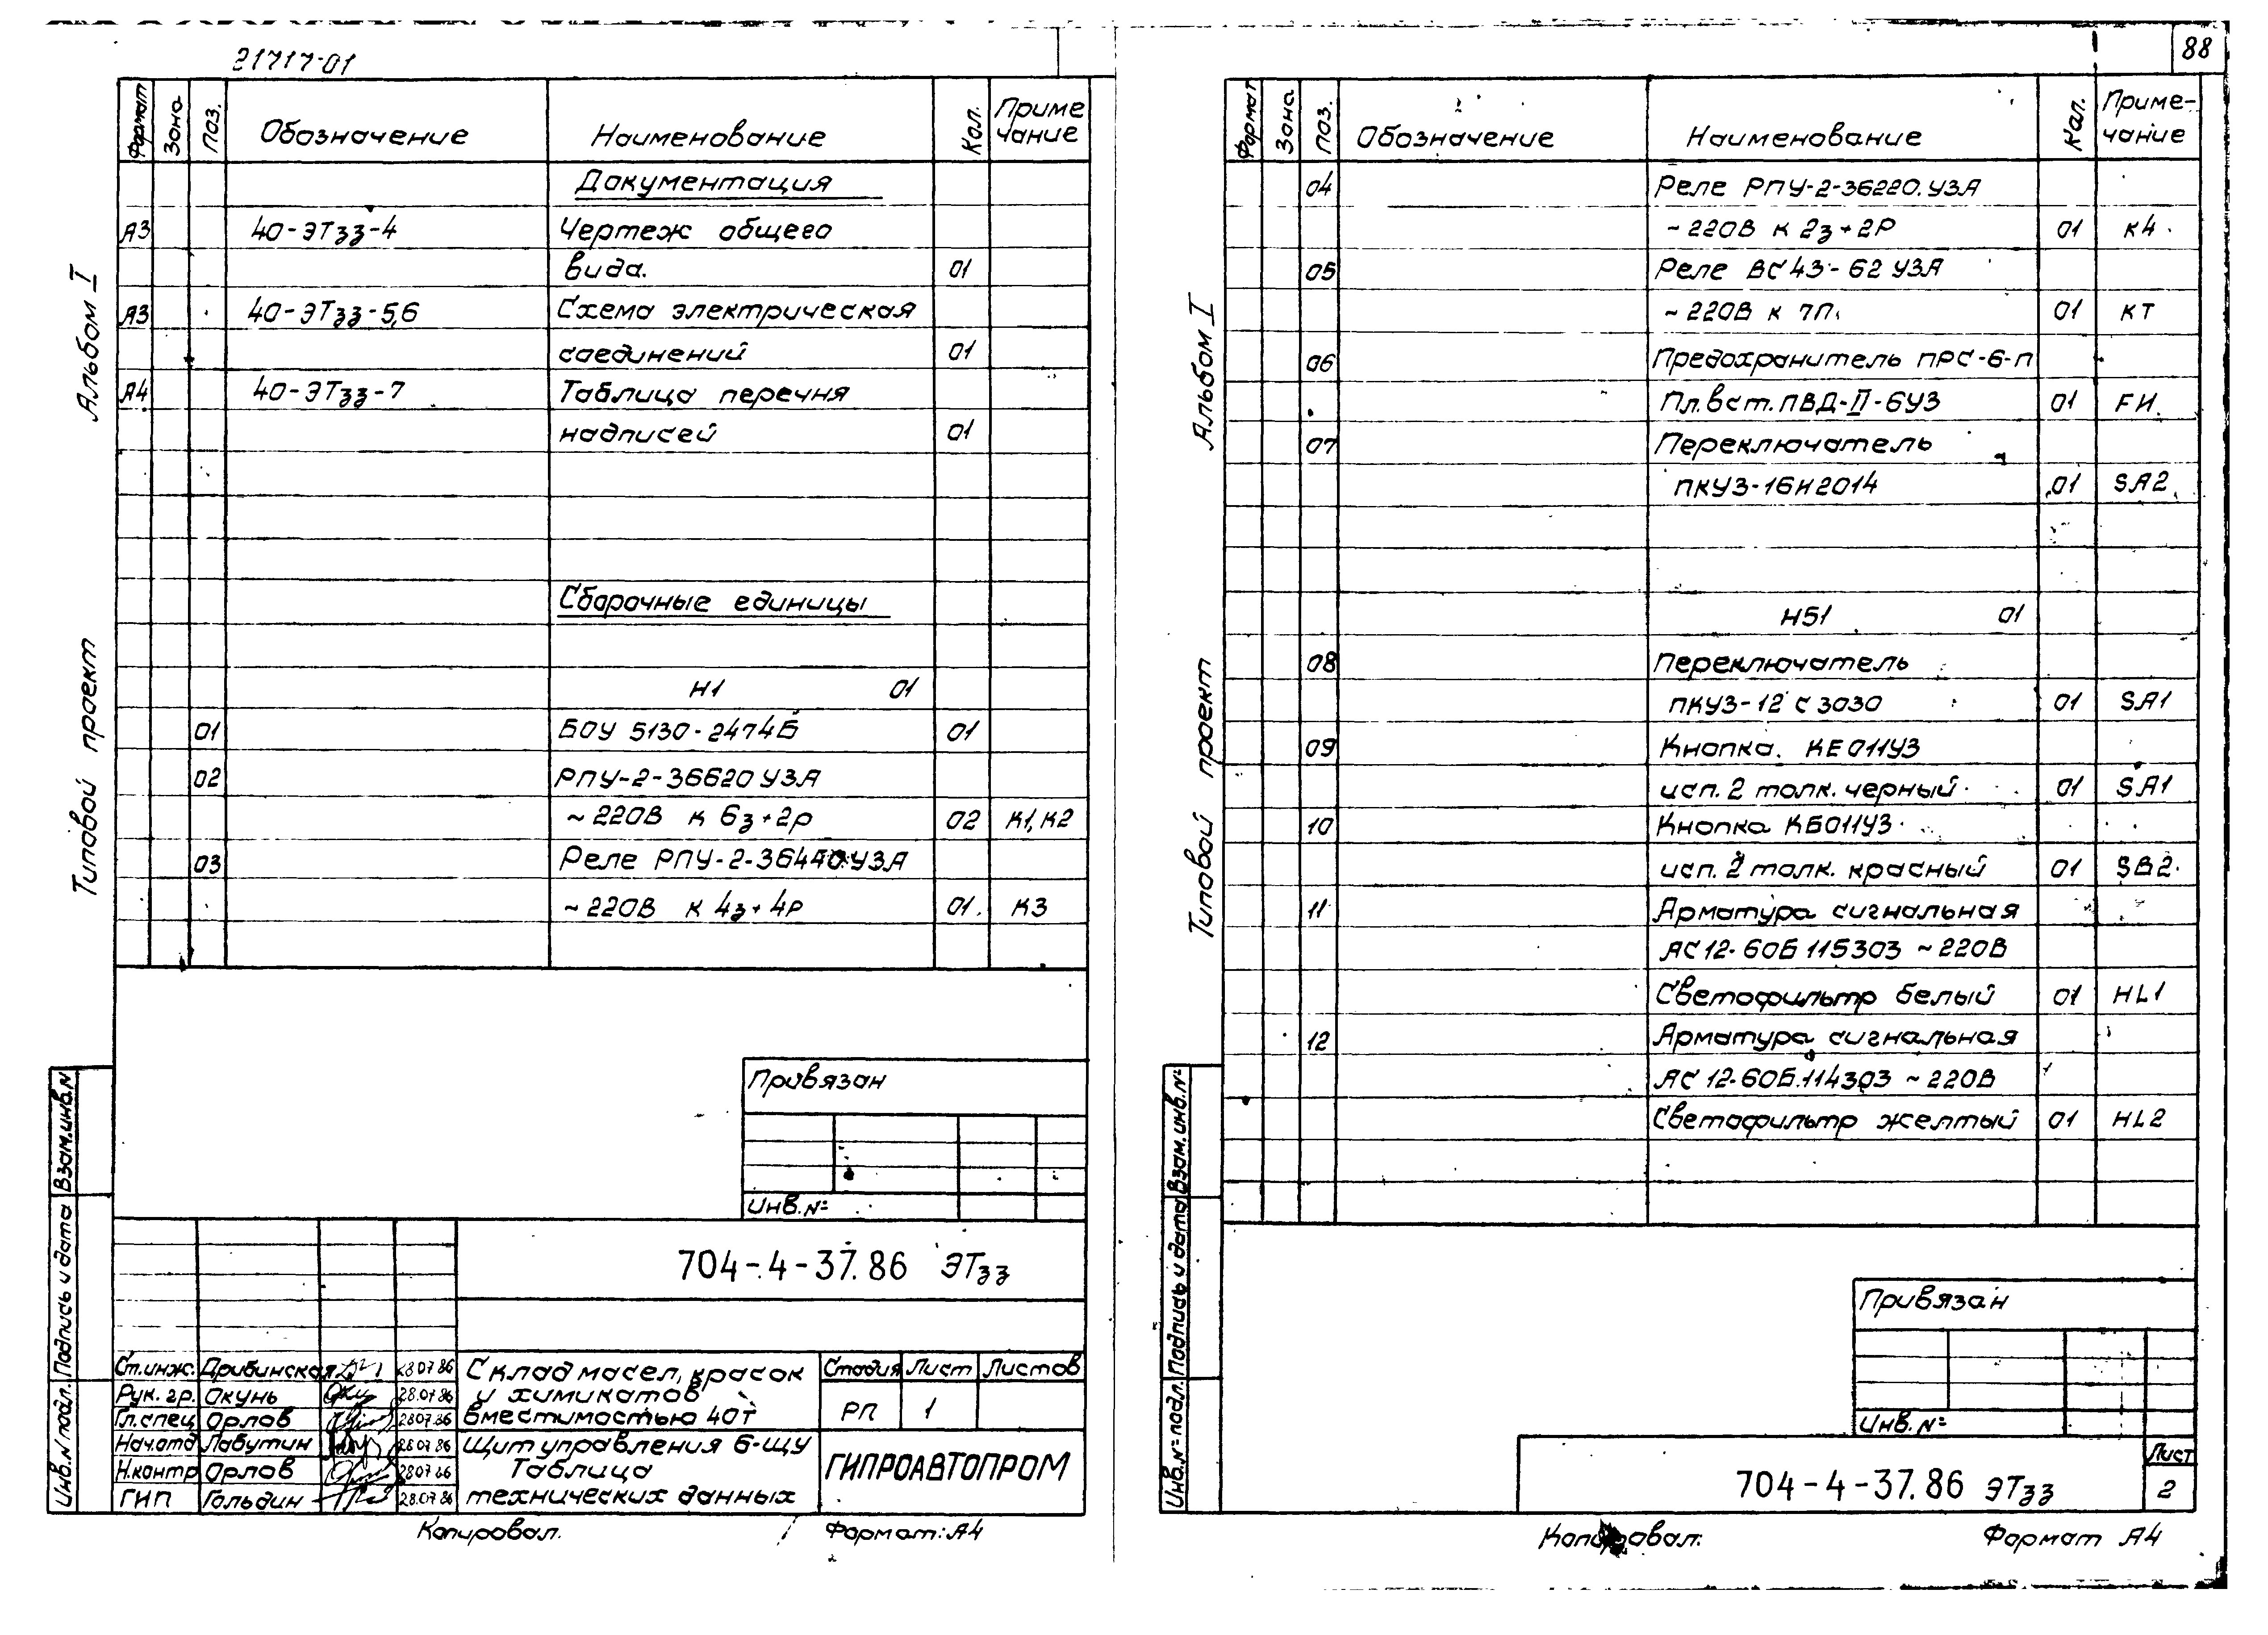 21717-01
88
Альбом I
Типовой проект
Формат Зона Поз. Обозначение Наименование Кол. Приме чание
Документация
А3 40-ЭТзз-4 Чертеж общего
вида. 01
А3 40-ЭТзз-5,6 Схема электрическая
соединений 01
А4 40-ЭТзз-7 Таблица перечня
надписей 01
Сборочные единицы
Н1 01
01 БОУ 5130-2474Б 01
02 РПУ-2-36620 УЗА
~220В К 6з+2р 02 К1,К2
03 Реле РПУ-2-36440.УЗА
~220В К 4з+4р 01. К3
Привязан
Инв.№
704-4-37.86 ЭТзз
Ст.инж. Дрибинская 28.07.86
Рук. гр. Окунь 28.07.86
Гл.спец Орлов 28.07.86
Нач.отд Лабутин 28.07.86
Н.контр Орлов 28.07.86
ГИП Гольдин 28.07.86
Склад масел, красок
и химикатов
вместимостью 40т
Щит управления 6-ЩУ
Таблица
технических данных
Стадия Лист Листов
РП 1
ГИПРОАВТОПРОМ
Инв.№ подл. Подпись и дата Взам.инв.№
Копировал. Формат: А4
Альбом I
Типовой проект
Формат Зона Поз. Обозначение Наименование Кол. Приме- чание
04 Реле РПУ-2-36220.УЗА
~220В К 2з+2Р 01 К4
05 Реле ВС43-62 УЗА
~220В К 7П. 01 КТ
06 Предохранитель ПРС-6-П
Пл.вст.ПВД-II-6УЗ 01 FИ.
07 Переключатель
ПКУЗ-16И2014 01 SA2
Н51 01
08 Переключатель
ПКУЗ-12 С 3030 01 SA1
09 Кнопка. КЕ011УЗ
исп. 2 толк. черный 01 SA1
10 Кнопка КБ011УЗ
исп. 2 толк. красный 01 SB2
11 Арматура сигнальная
АС12-60Б 115303 ~220В
Светофильтр белый 01 HL1
12 Арматура сигнальная
АС 12-60Б.114303 ~220В
Светофильтр желтый 01 HL2
Привязан
Инв. №
704-4-37.86 ЭТзз
Лист
2
Инв.№ подл. Подпись и дата Взам.инв.№
Копировал. Формат А4